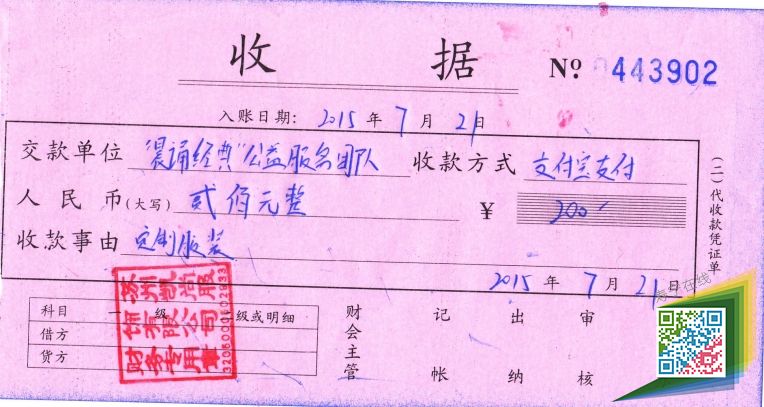 收 据 Nº 0443902
入账日期: 2015 年 7 月 21 日
交款单位 "晨诵经典"公益服务团队 收款方式 支付宝支付
人民币(大写) 贰佰元整 ¥ 200-
收款事由 定制服装
2015 年 7 月 21 日
(二)代收款凭证单
科目 一级 级或明细
借方
贷方
财会主管 记帐 出纳 审核
饰有限公司
财务专用章
在线